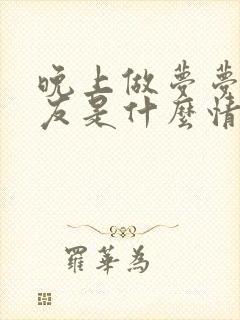 晚上做夢夢
友是什麼情
羅華為